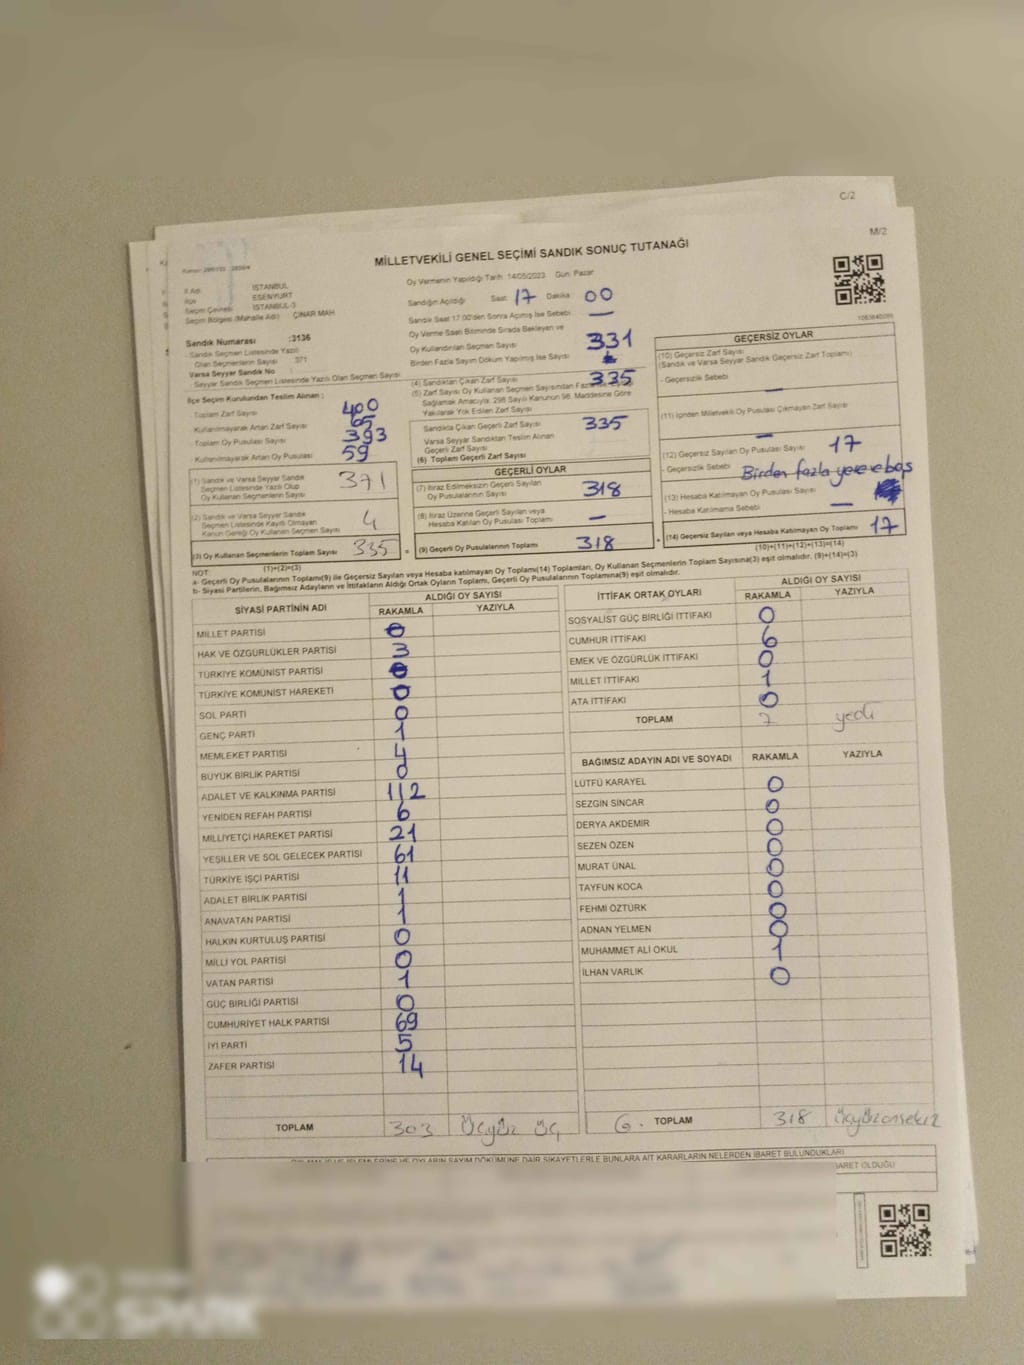 C/2
M/2
MİLLETVEKİLİ GENEL SEÇİMİ SANDIK SONUÇ TUTANAĞI
İl Adı : İSTANBUL
İlçe : ESENYURT
Seçim Çevresi : İSTANBUL-3
Seçim Bölgesi (Mahalle Adı) : ÇINAR MAH
Sandık Numarası :3136
- Sandık Seçmen Listesinde Yazılı
Olan Seçmenlerin Sayısı : 371
Varsa Seyyar Sandık No
Seyyar Sandık Seçmen Listesinde Yazılı Olan Seçmen Sayısı
Oy Vermenin Yapıldığı Tarih 14/05/2023 Gün: Pazar
Sandığın Açıldığı Saat 17 Dakika 00
Sandık Saat 17.00'den Sonra Açılmış İse Sebebi —
Oy Verme Saati Bitiminde Sırada Bekleyen ve
Oy Kullandırılan Seçmen Sayısı 331
Birden Fazla Sayım Döküm Yapılmış İse Sayısı
İlçe Seçim Kurulundan Teslim Alınan :
- Toplam Zarf Sayısı 400
- Kullanılmayarak Artan Zarf Sayısı 65
- Toplam Oy Pusulası Sayısı 393
- Kullanılmayarak Artan Oy Pusulası 59
(1) Sandık ve Varsa Seyyar Sandık
Seçmen Listesinde Yazılı Olup
Oy Kullanan Seçmenlerin Sayısı 371
(2) Sandık ve Varsa Seyyar Sandık
Seçmen Listesinde Kayıtlı Olmayan
Kanun Gereği Oy Kullanan Seçmen Sayısı 4
(3) Oy Kullanan Seçmenlerin Toplam Sayısı 335
(1)+(2)=(3)
(4) Sandıktan Çıkan Zarf Sayısı 335
(5) Zarf Sayısı Oy Kullanan Seçmen Sayısından
Sağlamak Amacıyla, 298 Sayılı Kanunun 98. Maddesine Göre
Yakılarak Yok Edilen Zarf Sayısı
Sandıkta Çıkan Geçerli Zarf Sayısı 335
Varsa Seyyar Sandıktan Teslim Alınan
Geçerli Zarf Sayısı
(6) Toplam Geçerli Zarf Sayısı
GEÇERLİ OYLAR
(7) İtiraz Edilmeksizin Geçerli Sayılan
Oy Pusulalarının Sayısı 318
(8) İtiraz Üzerine Geçerli Sayılan veya
Hesaba Katılan Oy Pusulası Toplamı —
(9) Geçerli Oy Pusulalarının Toplamı 318
GEÇERSİZ OYLAR
(10) Geçersiz Zarf Sayısı
(Sandık ve Varsa Seyyar Sandık Geçersiz Zarf Toplamı)
- Geçersizlik Sebebi —
(11) İçinden Milletvekili Oy Pusulası Çıkmayan Zarf Sayısı
—
(12) Geçersiz Sayılan Oy Pusulası Sayısı 17
- Geçersizlik Sebebi Birden fazla yere
(13) Hesaba Katılmayan Oy Pusulası Sayısı
- Hesaba Katılmama Sebebi —
(14) Geçersiz Sayılan veya Hesaba Katılmayan Oy Toplamı 17
(10)+(11)+(12)+(13)=(14)
NOT:
a- Geçerli Oy Pusulalarının Toplamı(9) ile Geçersiz Sayılan veya Hesaba katılmayan Oy Toplamı(14) Toplamları, Oy Kullanan Seçmenlerin Toplam Sayısına(3) eşit olmalıdır. (9)+(14)=(3)
b- Siyasi Partilerin, Bağımsız Adayların ve İttifakların Aldığı Ortak Oyların Toplamı, Geçerli Oy Pusulalarının Toplamına(9) eşit olmalıdır.
SİYASİ PARTİNİN ADI ALDIĞI OY SAYISI
RAKAMLA YAZIYLA
MİLLET PARTİSİ 0
HAK VE ÖZGÜRLÜKLER PARTİSİ 3
TÜRKİYE KOMÜNİST PARTİSİ 0
TÜRKİYE KOMÜNİST HAREKETİ 0
SOL PARTİ 0
GENÇ PARTİ 1
MEMLEKET PARTİSİ 4
BÜYÜK BİRLİK PARTİSİ 0
ADALET VE KALKINMA PARTİSİ 112
YENİDEN REFAH PARTİSİ 6
MİLLİYETÇİ HAREKET PARTİSİ 21
YEŞİLLER VE SOL GELECEK PARTİSİ 61
TÜRKİYE İŞÇİ PARTİSİ 11
ADALET BİRLİK PARTİSİ 1
ANAVATAN PARTİSİ 1
HALKIN KURTULUŞ PARTİSİ 0
MİLLİ YOL PARTİSİ 0
VATAN PARTİSİ 1
GÜÇ BİRLİĞİ PARTİSİ 0
CUMHURİYET HALK PARTİSİ 69
İYİ PARTİ 5
ZAFER PARTİSİ 14
TOPLAM 303 Üçyüz üç
İTTİFAK ORTAK OYLARI ALDIĞI OY SAYISI
RAKAMLA YAZIYLA
SOSYALİST GÜÇ BİRLİĞİ İTTİFAKI 0
CUMHUR İTTİFAKI 6
EMEK VE ÖZGÜRLÜK İTTİFAKI 0
MİLLET İTTİFAKI 1
ATA İTTİFAKI 0
TOPLAM 7 yedi
BAĞIMSIZ ADAYIN ADI VE SOYADI RAKAMLA YAZIYLA
LÜTFÜ KARAYEL 0
SEZGİN SİNCAR 0
DERYA AKDEMİR 0
SEZEN ÖZEN 0
MURAT ÜNAL 0
TAYFUN KOCA 0
FEHMİ ÖZTÜRK 0
ADNAN YELMEN 0
MUHAMMET ALİ OKUL 1
İLHAN VARLIK 0
G. TOPLAM 318 üçyüzonsekiz